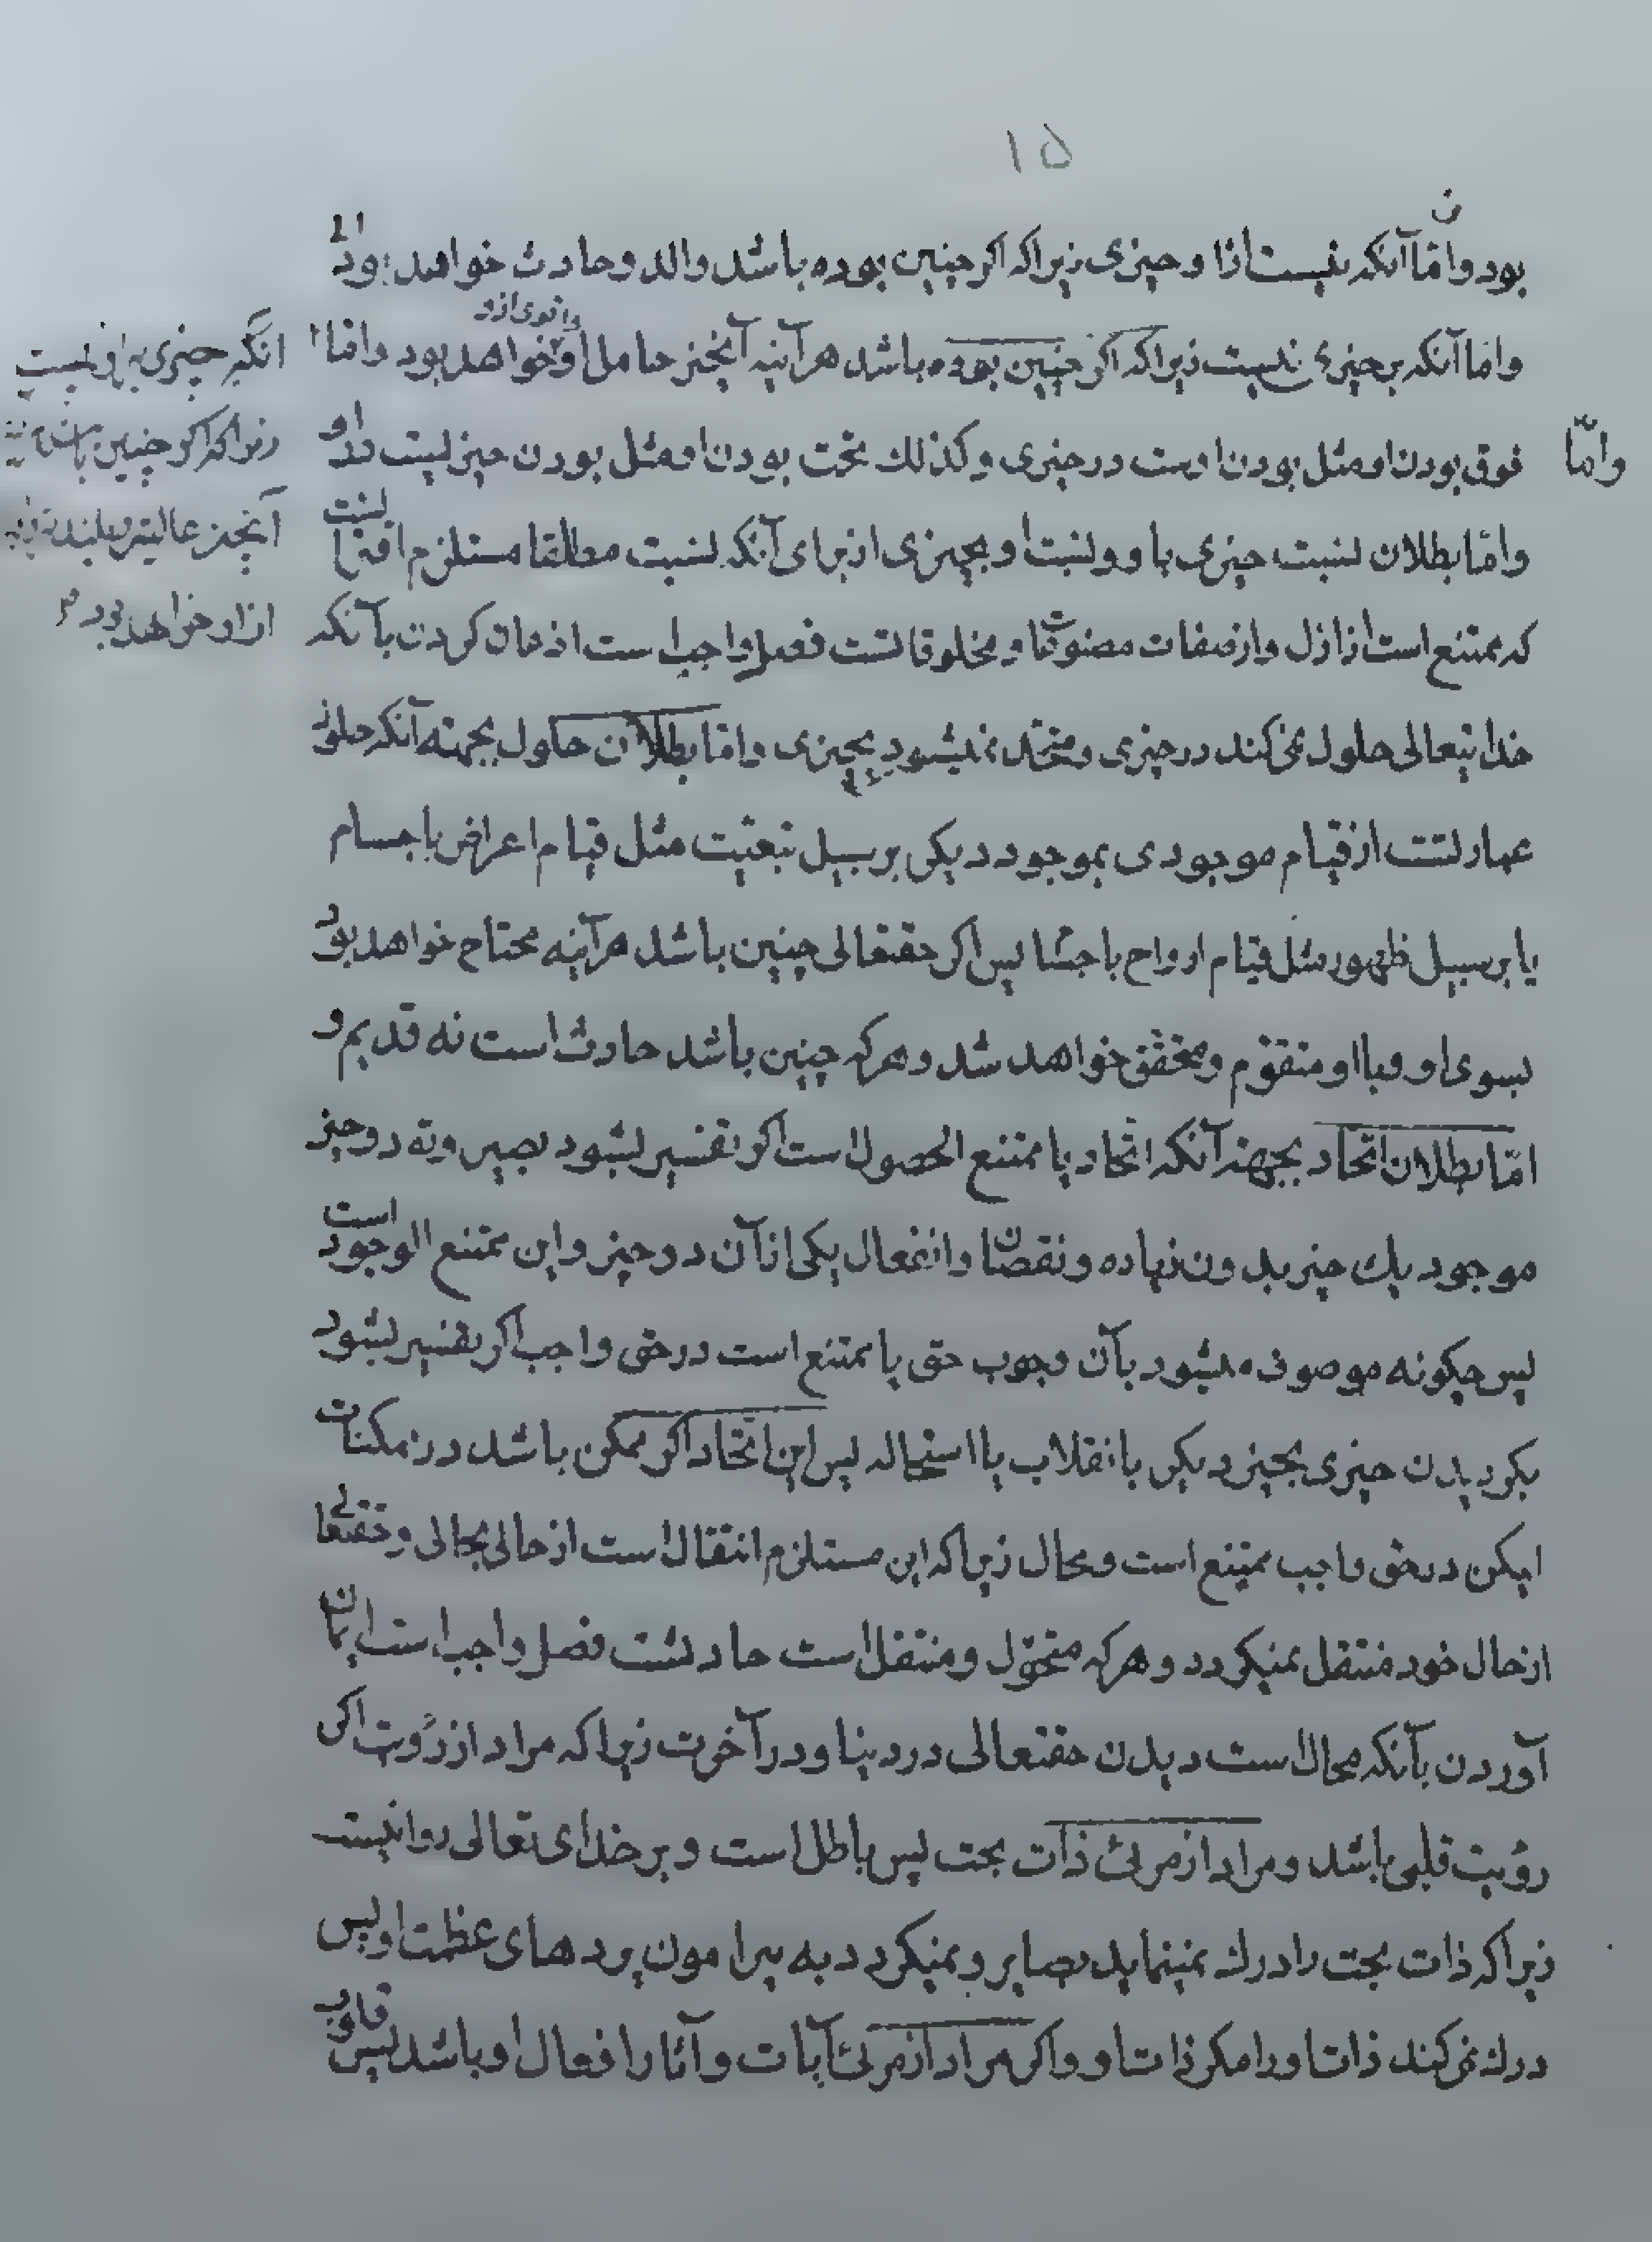 ۱۵
بود و امّا آنکه نیست ازا و چیزی زیرا که اکر چنین بوده باشد والد و حادث خواهد بود
و امّا آنکه بر چیزی نیست زیرا که اکر چنین بوده باشد هرآینه آنچیز حامل او و اقوی ازو خواهد بود و امّا
آنکه چیزی بر او نیست
زیرا که اکر چنین باشد
آنچیز عالیتر و بلندتر
از او خواهد بود
و امّا
فوق بودن او مثل بودن اوست در چیزی و کذلك تحت بودن او مثل بودن چیزیست در او
و امّا بطلان نسبت چیزی با و و نسبت او بچیزی از برای آنکه نسبت مطلقا مستلزم اقترانست
که ممتنع است از ازل و از صفات مصنوعات و مخلوقاتست فصل واجب است اذعان کردن بآنکه
خدایتعالی حلول نمیکند در چیزی و متّحد نمیشود بچیزی و امّا بطلان حلول بجهته آنکه حلول
عبارتست از قیام موجودی بموجود دیکری بر سبیل تبعیّت مثل قیام اعراض باجسام
یا بر سبیل ظهور مثل قیام ارواح باجساد پس اکر حقتعالی چنین باشد هرآینه محتاج خواهد بود
بسوی او و با او متقوّم و متحقّق خواهد شد و هرکه چنین باشد حادث است نه قدیم و
امّا بطلان اتّحاد بجهته آنکه اتّحاد یا ممتنع الحصول است اکر تفسیر بشود بصیرورة دو چیز
موجود یك چیز بدون زیاده و نقصان و انفعال یکی از آن دو چیز و این ممتنع الوجود است
پس چکونه موصوف میشود بآن وجوب حق یا ممتنع است در حق واجب اکر تفسیر بشود
بکردیدن چیزی بچیز دیکر بانقلاب یا استحاله پس این اتّحاد اکر ممکن باشد در ممکنات
لیکن در حق واجب ممتنع است و محال زیرا که این مستلزم انتقال است از حالی بحالی و حقتعالی
از حال خود منتقل نمیکردد و هرکه متحوّل و منتقل است حادثست فصل واجب است ایمان
آوردن بآنکه محال است دیدن حقتعالی در دنیا و در آخرت زیرا که مراد از رؤیت اکر
رؤیت قلبی باشد و مراد از مرئی ذات بحت پس باطل است و بر خدای تعالی روا نیست
زیرا که ذات بحت را درك نمینماید بصایر و نمیکردد به پیرامون پردهای عظمت او پس قلوب
درك نمیکند ذات او را مکر ذات او و اکر مراد از مرئی آیات و آثار افعال او باشد پس